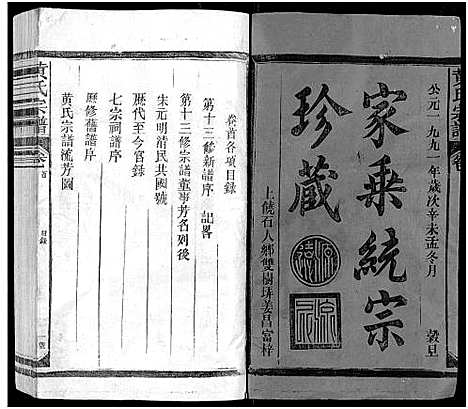 公元一九九一年歲次辛未孟冬月 穀旦
家乘統宗
珍藏
上饒石人鄉雙樹垟姜昌富梓
卷首各項目錄
第十三修新譜序 記畧
第十三修宗譜董事芳名列後
宋元明清民共國號
歷代至今官錄
七宗祠譜序
歷修舊譜序
黄氏宗譜流芳圖
黄氏宗譜
卷首
目錄